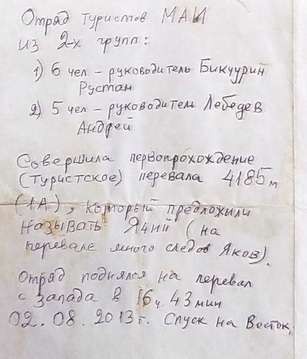 Отряд туристов МАИ
из 2-х групп:
1) 6 чел – руководитель Бикчурин
Рустан
2) 5 чел – руководитель Лебедев
Андрей
Совершила первопрохождение
(туристское) перевала 4185м
(1А), который предложили
назывАТЬ Ячий (на
перевале много следов Яков).
Отряд поднялся на перевал
с запада в 16ч. 43 мин
02.08.2013г. Спуск на Восток.